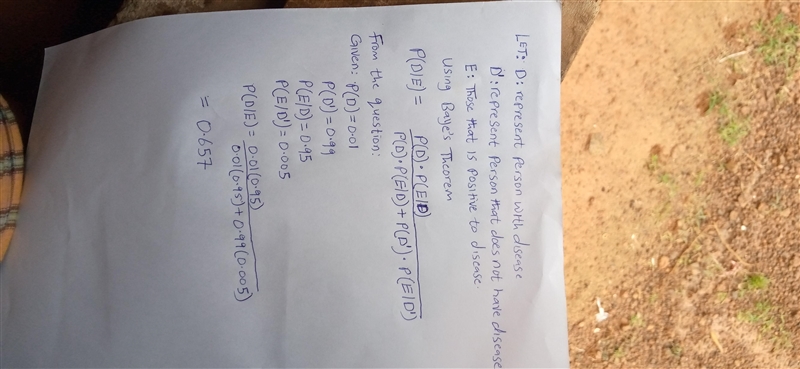 LET: D: represent Person with disease
D': represent Person that does not have disease
E: Those that is Positive to disease
Using Baye's Theorem
P(D/E) = P(D)·P(E/D) / P(D)·P(E/D) + P(D')·P(E/D')
From the question:
Given: P(D) = 0.01
P(D') = 0.99
P(E/D) = 0.95
P(E/D') = 0.005
P(D/E) = 0.01(0.95) / 0.01(0.95) + 0.99(0.005)
= 0.657